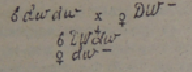 ♂ dw dw x ♀ Dw -
♂ Dw dw
♀ dw -